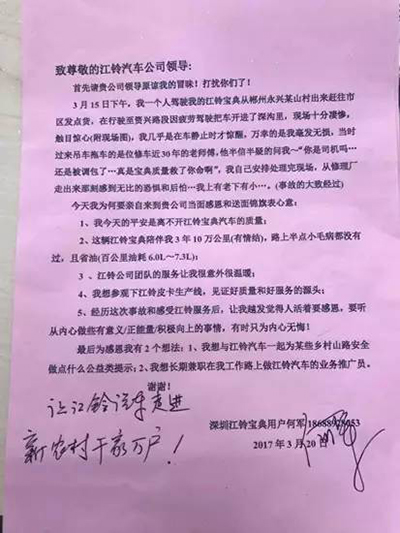 致尊敬的江铃汽车公司领导:
首先请贵公司领导原谅我的冒味！打扰你们了！
3 月 15 日下午，我一个人驾驶我的江铃宝典从郴州永兴某山村出来赶往市
区发点货，在行驶至资兴路段因疲劳驾驶把车开进了深沟里，现场十分凄惨，
触目惊心(附现场图)，我几乎是在车静止时才惊醒，万幸的是我毫发无损，当时
过来吊车拖车的是位修车近 30 年的老师傅，他半信半疑的问我~“你是司机吗…
还是被调包了…真是宝典质量救了你命啊”，我自己安排处理完现场，从修理厂
走出来那刻感到无比的恐惧和后怕…我上有老下有小…。(事故的大致经过)
今天我为何要亲自来到贵公司当面感恩和送面锦旗表心意:
1、我今天的平安是离不开江铃宝典汽车的质量:
2、这辆江铃宝典陪伴我 3 年 10 万公里(有情结)，路上半点小毛病都没有
过，且省油(百公里油耗 6.0L~7.3L);
3 、江铃公司团队的服务让我很意外很温暖;
4、我想参观下江铃皮卡生产线，见证好质量和好服务的源头;
5、经历这次事故和感受江铃服务后，让我越发觉得人活着要感恩，要听
从内心做些有意义/正能量/积极向上的事情，有时只为内心无悔！
最后为感恩我有 2 个想法：1、我想与江铃汽车一起为某些乡村山路安全
做点什么公益类提示；2、我想长期兼职在我工作路上做江铃汽车的业务推广员。
谢谢！
让江铃汽车走进
新农村千家万户！
深圳江铃宝典用户何军
2017 年 3 月 20 日